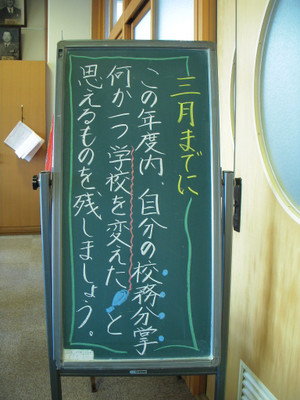 三月までに
この年度内、自分の校務分掌
何か一つ学校を変えた、と
思えるものを残しましょう。